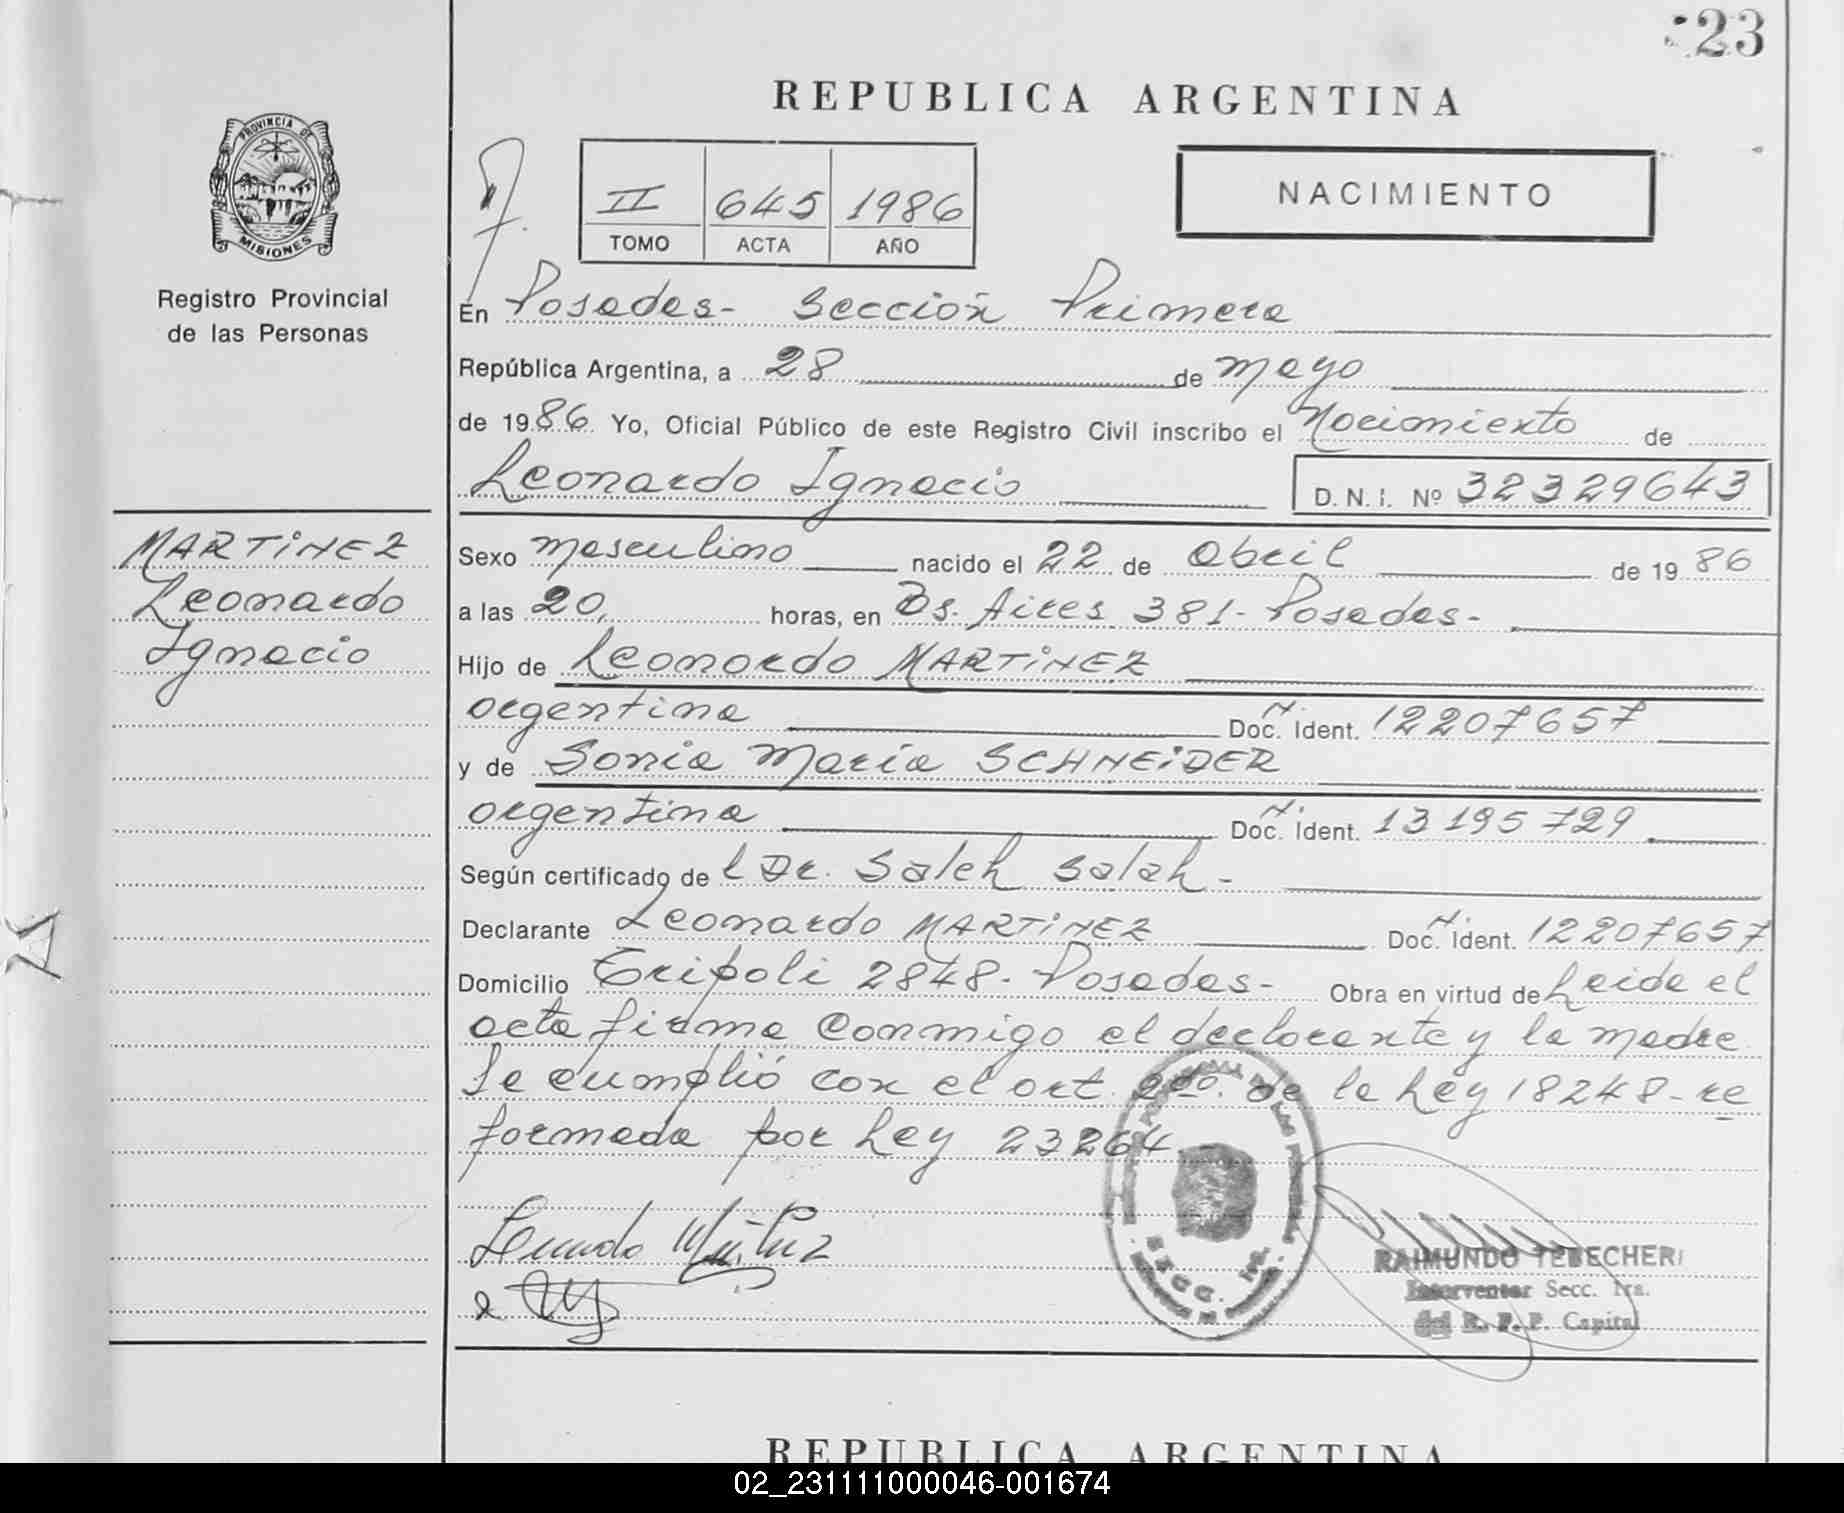 23
REPUBLICA ARGENTINA
PROVINCIA DE
MISIONES
Registro Provincial
de las Personas
II 645 1986
TOMO ACTA AÑO
NACIMIENTO
En Posadas- Sección Primera
República Argentina, a 28 de mayo
de 1986. Yo, Oficial Público de este Registro Civil inscribo el Nacimiento de
Leonardo Ignacio D.N.I. Nº 32329643
MARTINEZ
Leonardo
Ignacio
Sexo masculino nacido el 22 de Abril de 1986
a las 20, horas, en Bs. Aires 381- Posadas-
Hijo de Leonardo MARTINEZ
argentina Doc. N. Ident. 12207657
y de Sonia María SCHNEIDER
argentina Doc. N. Ident. 13195729
Según certificado del Dr. Saleh Salah-
Declarante Leonardo MARTINEZ Doc. N. Ident. 12207657
Domicilio Tripoli 2848- Posadas- Obra en virtud de Leida el
acta firma conmigo el declarante y la madre
Se cumplió con el art. 2do. de la Ley 18248- re
formada por Ley 23264
RAIMUNDO TEBECHERI
Interventor Secc. 1ra.
del R. P. P. Capital
REPUBLICA ARGENTINA
02_231111000046-001674